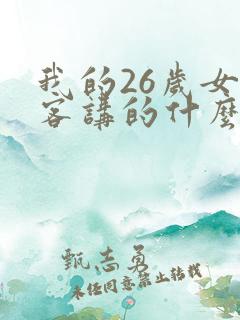 我的26歲女
客講的什麼
甄志勇
未经同意禁止转载